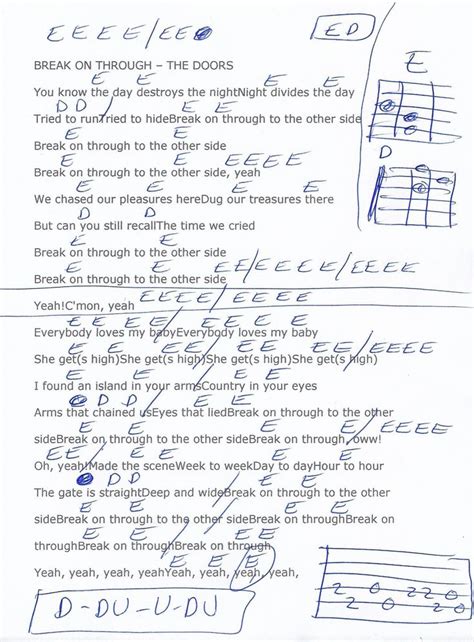 E E E E / E E
E D
BREAK ON THROUGH – THE DOORS
E E E E
E
You know the day destroys the nightNight divides the day
D D E E
Tried to runTried to hideBreak on through to the other side
E E
D
Break on through to the other side
E E E E E E
Break on through to the other side, yeah
E E
We chased our pleasures hereDug our treasures there
D D
But can you still recallThe time we cried
E E
Break on through to the other side
E E E E / E E E E / E E E E
Break on through to the other side
E E E E / E E E E
Yeah!C'mon, yeah
E E E E E E
Everybody loves my babyEverybody loves my baby
E E E E E E E / E E E E
She get(s high)She get(s high)She get(s high)She get(s high)
E E E E
I found an island in your armsCountry in your eyes
D D E E
Arms that chained usEyes that liedBreak on through to the other
E E E E / E E E E
sideBreak on through to the other sideBreak on through, oww!
E E E E E
Oh, yeah!Made the sceneWeek to weekDay to dayHour to hour
D D E E
The gate is straightDeep and wideBreak on through to the other
E E E E
sideBreak on through to the other sideBreak on throughBreak on
E E E E
throughBreak on throughBreak on through
E E E
Yeah, yeah, yeah, yeahYeah, yeah, yeah, yeah, yeah,
D - DU - U - DU
2 0 2 0 2 2 0